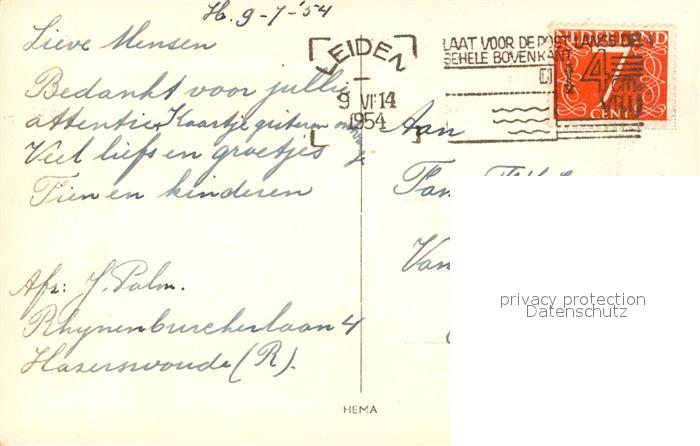 H. 9-7-'54
Lieve Mensen
Bedankt voor jullie
attentie. Kaartje gisteren
Veel liefs en groetjes
Tien en kinderen
Afz: J. Palm.
Rhynenburcherlaan 4
Hazerswoude (R).
LEIDEN
9 VII 14
1954
LAAT VOOR DE POST LANGS DE
GEHELE BOVENKANT
4 cm
VRIJ
7
CENT
Aan
Fam.
Van
HEMA
privacy protection
Datenschutz